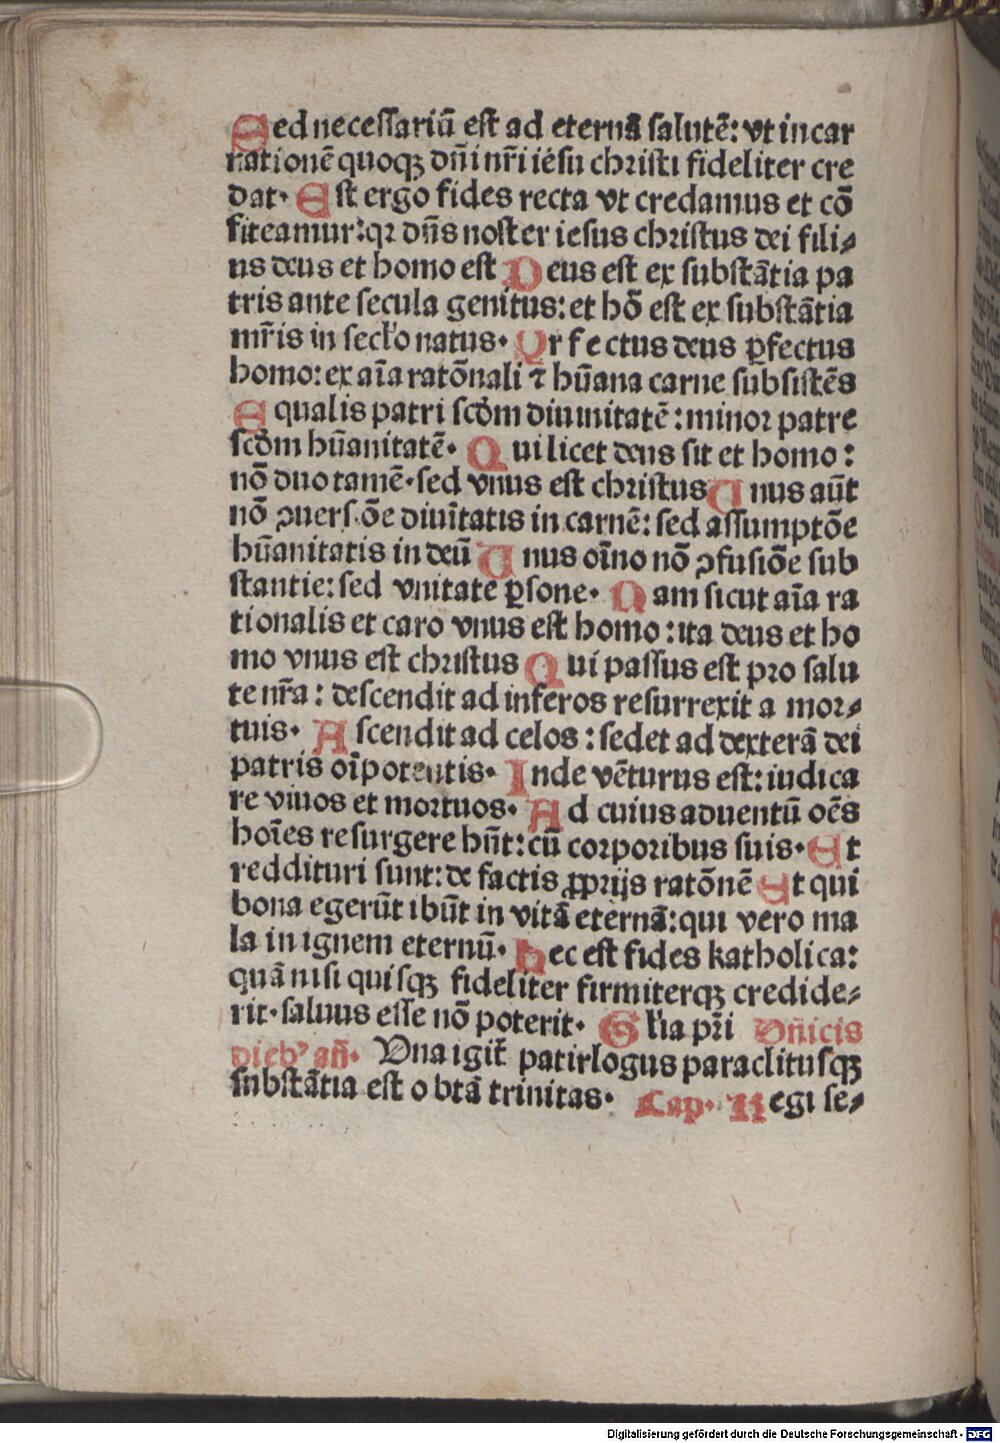 Sed necessariū est ad eternā salutē: vt incar
nationē quoqꝫ dn̄i nr̄i iēsu christi fideliter cre
dat· Est ergo fides recta vt credamus et cō
fiteamur: qꝛ dn̄s noster iesus christus dei fili⸗
us deus et homo est Deus est ex substātia pa
tris ante secula genitus: et hō est ex substātia
mr̄is in secl̄o natus· Perfectus deus ꝑfectus
homo: ex aīa ratōnali ⁊ hūana carne subsistēs
Equalis patri scd̄m diuinitatē: minor patre
scd̄m hūanitatē· Qui licet deus sit et homo:
nō duo tamē· sed vnus est christus Unus aūt
nō ꝯuersiōe diuītatis in carnē: sed assumptōe
hūanitatis in deū Unus oīno nō ꝯfusiōe sub
stantie: sed vnitate ꝑsone· Nam sicut aīa ra
tionalis et caro vnus est homo: ita deus et ho
mo vnus est christus Qui passus est pro salu
te nr̄a: descendit ad inferos resurrexit a mor⸗
tuis· Ascendit ad celos: sedet ad dexterā dei
patris oīpotentis· Inde vēturus est: iudica
re viuos et mortuos· Ad cuius aduentū oēs
hoīes resurgere hn̄t: cū corporibus suis· Et
reddituri sunt: de factis ꝓprijs ratōnē Et qui
bona egerūt ibūt in vitā eternā: qui vero ma
la in ignem eternū· Hec est fides katholica:
quā nisi quisqꝫ fideliter firmiterqꝫ credide⸗
rit· saluus esse nō poterit· Gl̄ia pr̄i Dn̄icis
diebꝰ an̄· Vna igit̄ patirlogus paraclitusqꝫ
substātia est o btā trinitas· Cap· Regi se⸗
Digitalisierung gefördert durch die Deutsche Forschungsgemeinschaft - DFG